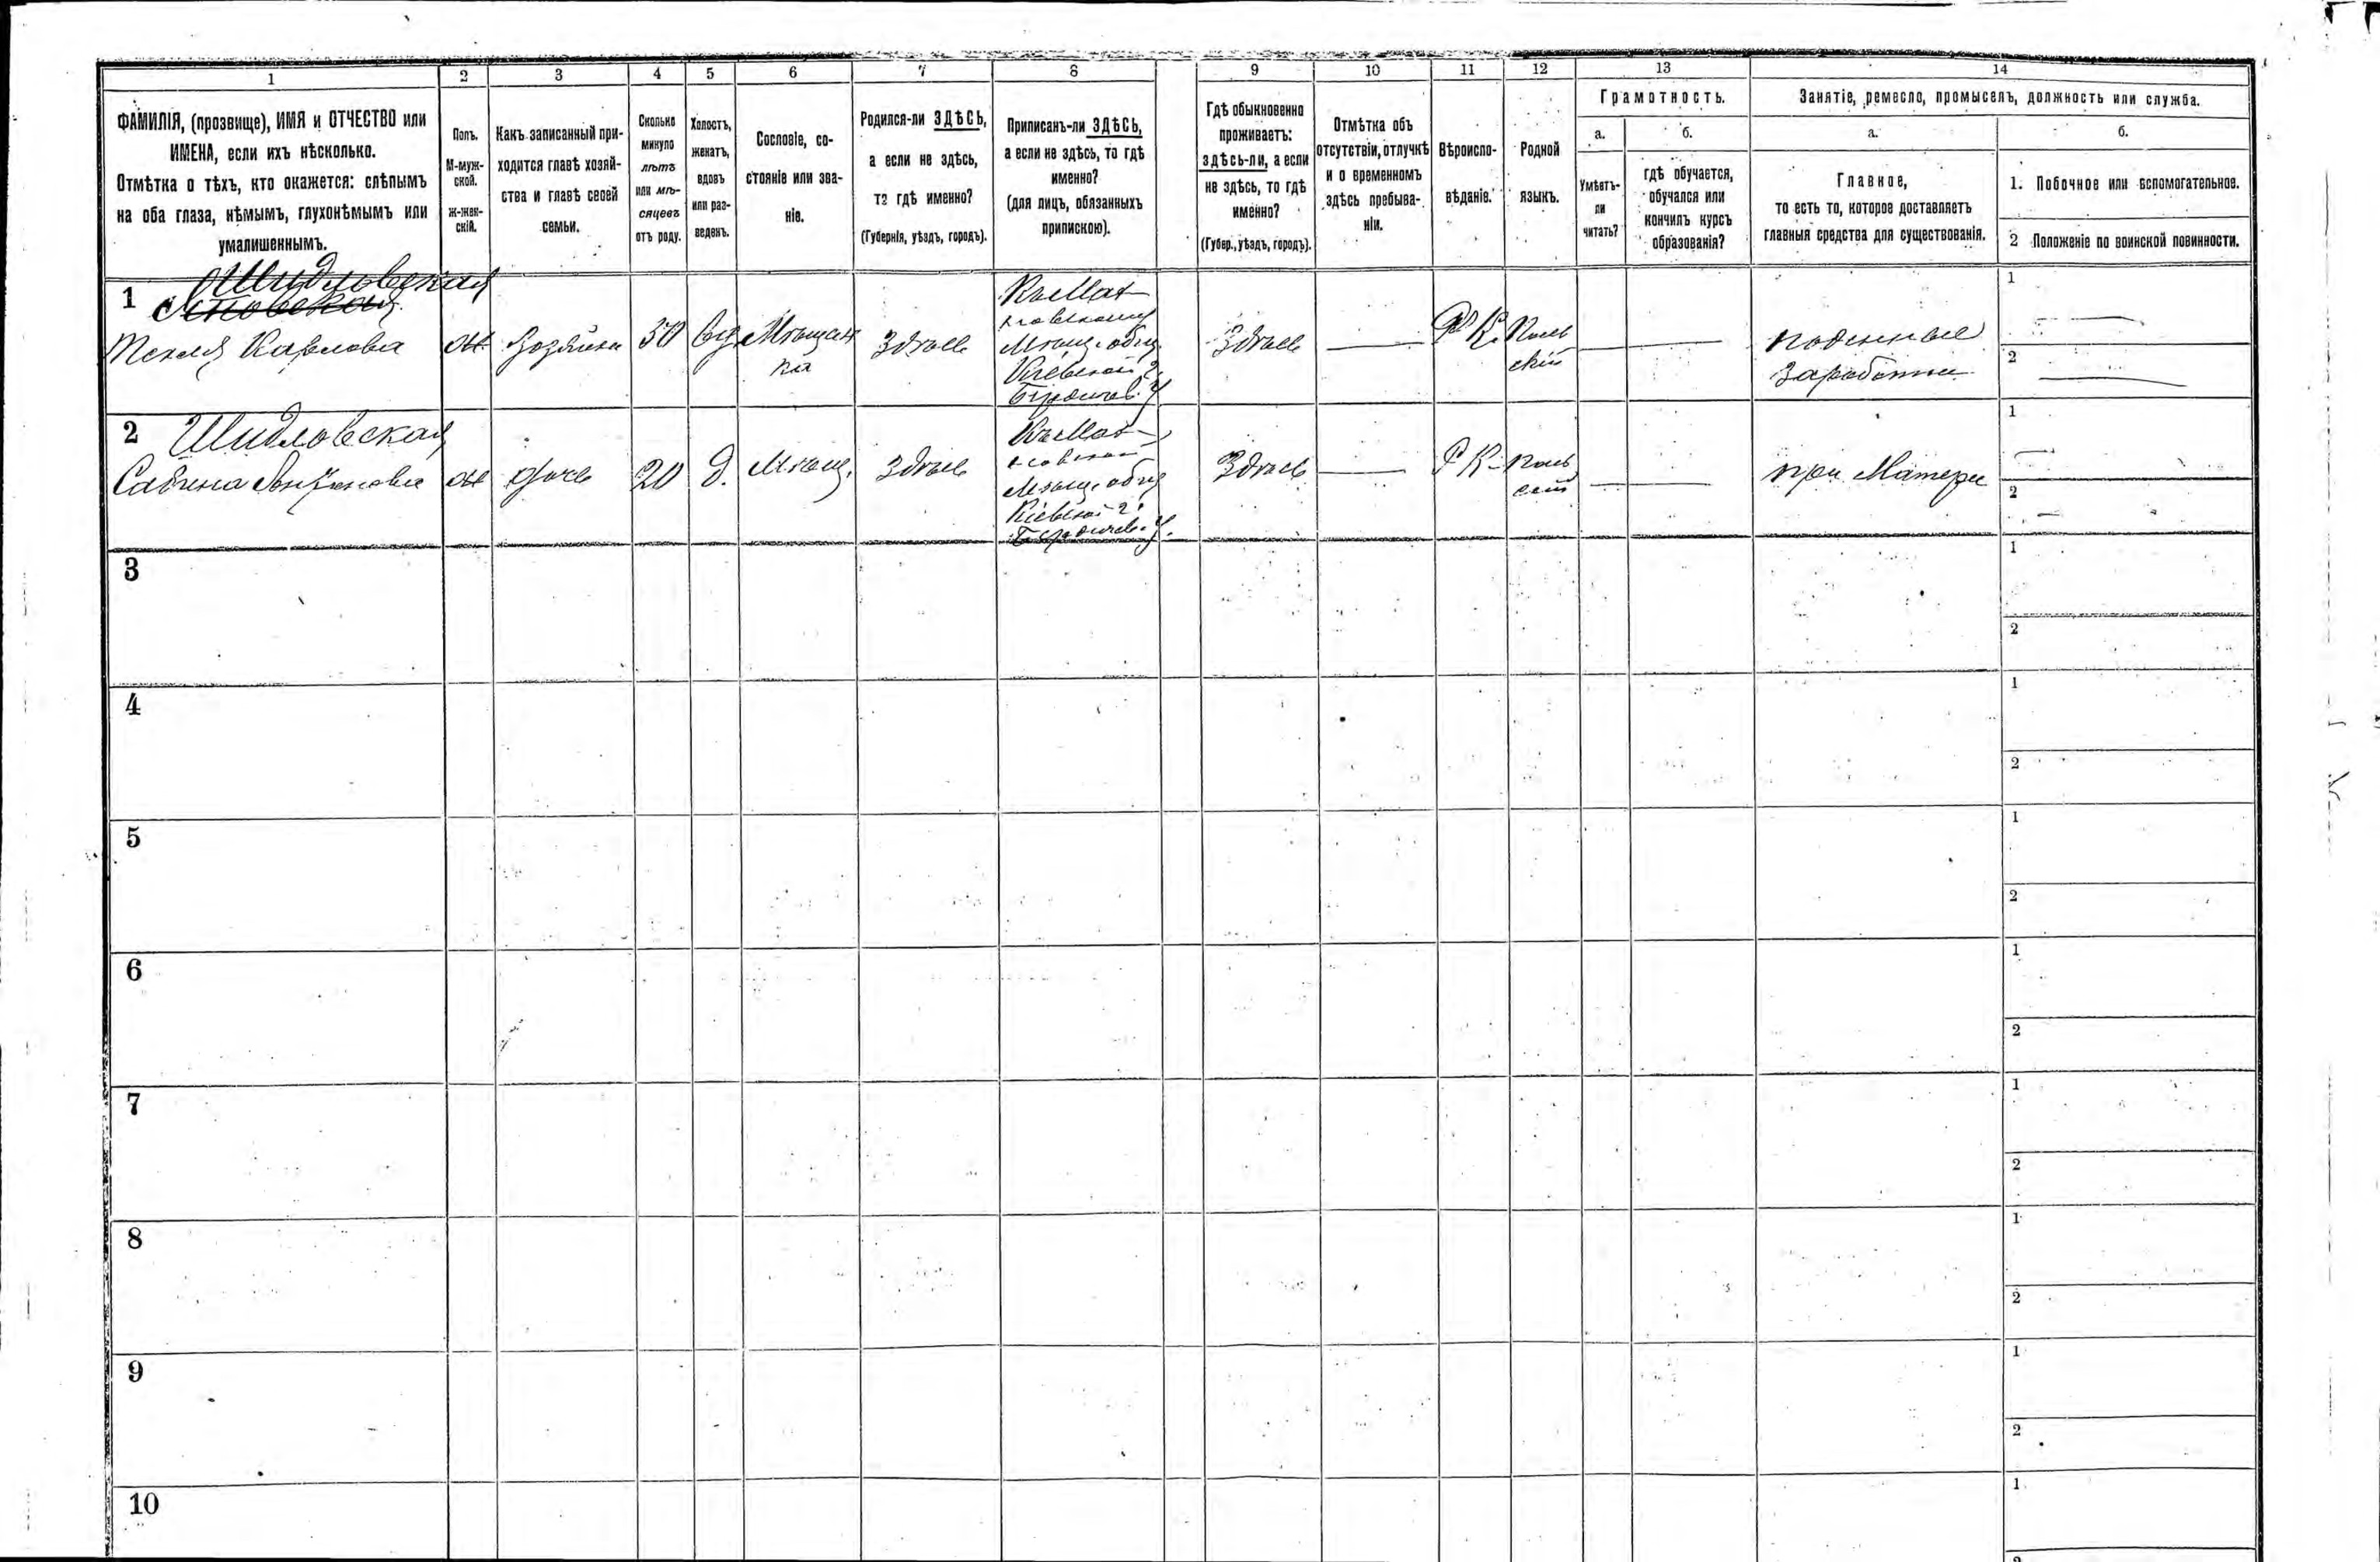 1
2
3
4
5
6
7
8
9
10
11
12
13
14
ФАМИЛІЯ, (прозвище), ИМЯ и ОТЧЕСТВО или
ИМЕНА, если ихъ нѣсколько.
Отмѣтка о тѣхъ, кто окажется: слѣпымъ
на оба глаза, нѣмымъ, глухонѣмымъ или
умалишеннымъ.
Полъ.
М-муж-
ской.
ж-жен-
скій.
Какъ записанный при-
ходится главѣ хозяй-
ства и главѣ своей
семьи.
Сколько
минуло
лѣтъ
или мѣ-
сяцевъ
отъ роду.
Холостъ,
женатъ,
вдовъ
или раз-
веденъ.
Сословіе, со-
стояніе или зва-
ніе.
Родился-ли ЗДѢСЬ,
а если не здѣсь,
то гдѣ именно?
(Губернія, уѣздъ, городъ).
Приписанъ-ли ЗДѢСЬ,
а если не здѣсь, то гдѣ
именно?
(для лицъ, обязанныхъ
припискою).
Гдѣ обыкновенно
проживаетъ:
здѣсь-ли, а если
не здѣсь, то гдѣ
именно?
(Губер., уѣздъ, городъ).
Отмѣтка объ
отсутствіи, отлучкѣ
и о временномъ
здѣсь пребыва-
ніи.
Вѣроиспо-
вѣданіе.
Родной
языкъ.
Грамотность.
а.
Умѣетъ-
ли
читать?
б.
гдѣ обучается,
обучался или
кончилъ курсъ
образованія?
Занятіе, ремесло, промыселъ, должность или служба.
а.
Главное,
то есть то, которое доставляетъ
главныя средства для существованія.
б.
1. Побочное или вспомогательное.
2 Положеніе по воинской повинности.
1
Шидловская
Текля Карлова
ж
Хозяйка
50
вд
Мѣщан
ка
Здѣсь
Мѣщ. общ
Кіевской г.
Бердичев. у
Здѣсь
Р К.
Поль
скій
поденные
заработки
1
2
2
Шидловская
Сабина Антонова
ж
дочь
20
д.
Мѣщ.
Здѣсь
Мѣщ. общ
Кіевской г.
Бердичев. у.
Здѣсь
Р К.
Поль
скій
при Матери
1
2
3
1
2
4
1
2
5
1
2
6
1
2
7
1
2
8
1
2
9
1
2
10
1